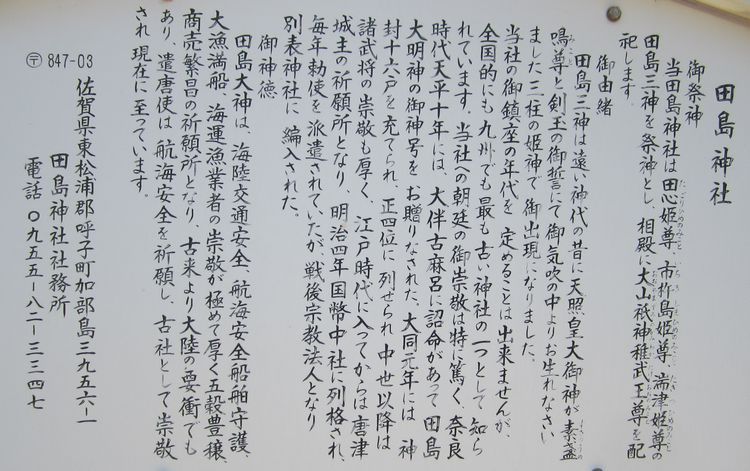 田島神社
御祭神
当田島神社は田心姫尊、市杵島姫尊、湍津姫尊の
田島三神を祭神とし、相殿に大山祇神稚武王尊を配
祀します。
御由緒
田島三神は遠い神代の昔に天照皇大御神が素盞
鳴尊と剣玉の御誓にて御気吹の中よりお生れなさい
ました三柱の姫神で御出現になりました。
当社の御鎮座の年代を定めることは出来ませんが、
全国的にも九州でも最も古い神社の一つとして知ら
れています。当社への朝廷の御崇敬は特に篤く、奈良
時代天平十年には、大伴古麻呂に詔命があって田島
大明神の御神号をお贈りなされた、大同元年には神
封十六戸を充てられ、正四位に列せられ中世以降は
諸武将の崇敬も厚く、江戸時代に入ってからは唐津
城主の祈願所となり、明治四年国幣中社に列格され、
毎年勅使を派遣されていたが、戦後宗教法人となり
別表神社に編入された。
御神徳
田島大神は、海陸交通安全、航海安全船舶守護、
大漁満船、海運漁業者の崇敬が極めて厚く五穀豊穣、
商売繁昌の祈願所となり、古来より大陸の要衝でも
あり、遣唐使は航海安全を祈願し、古社として崇敬
され現在に至っています。
〒847-03
佐賀県東松浦郡呼子町加部島三九五六ー一
田島神社社務所
電話 〇九五五ー八二ー三三四七